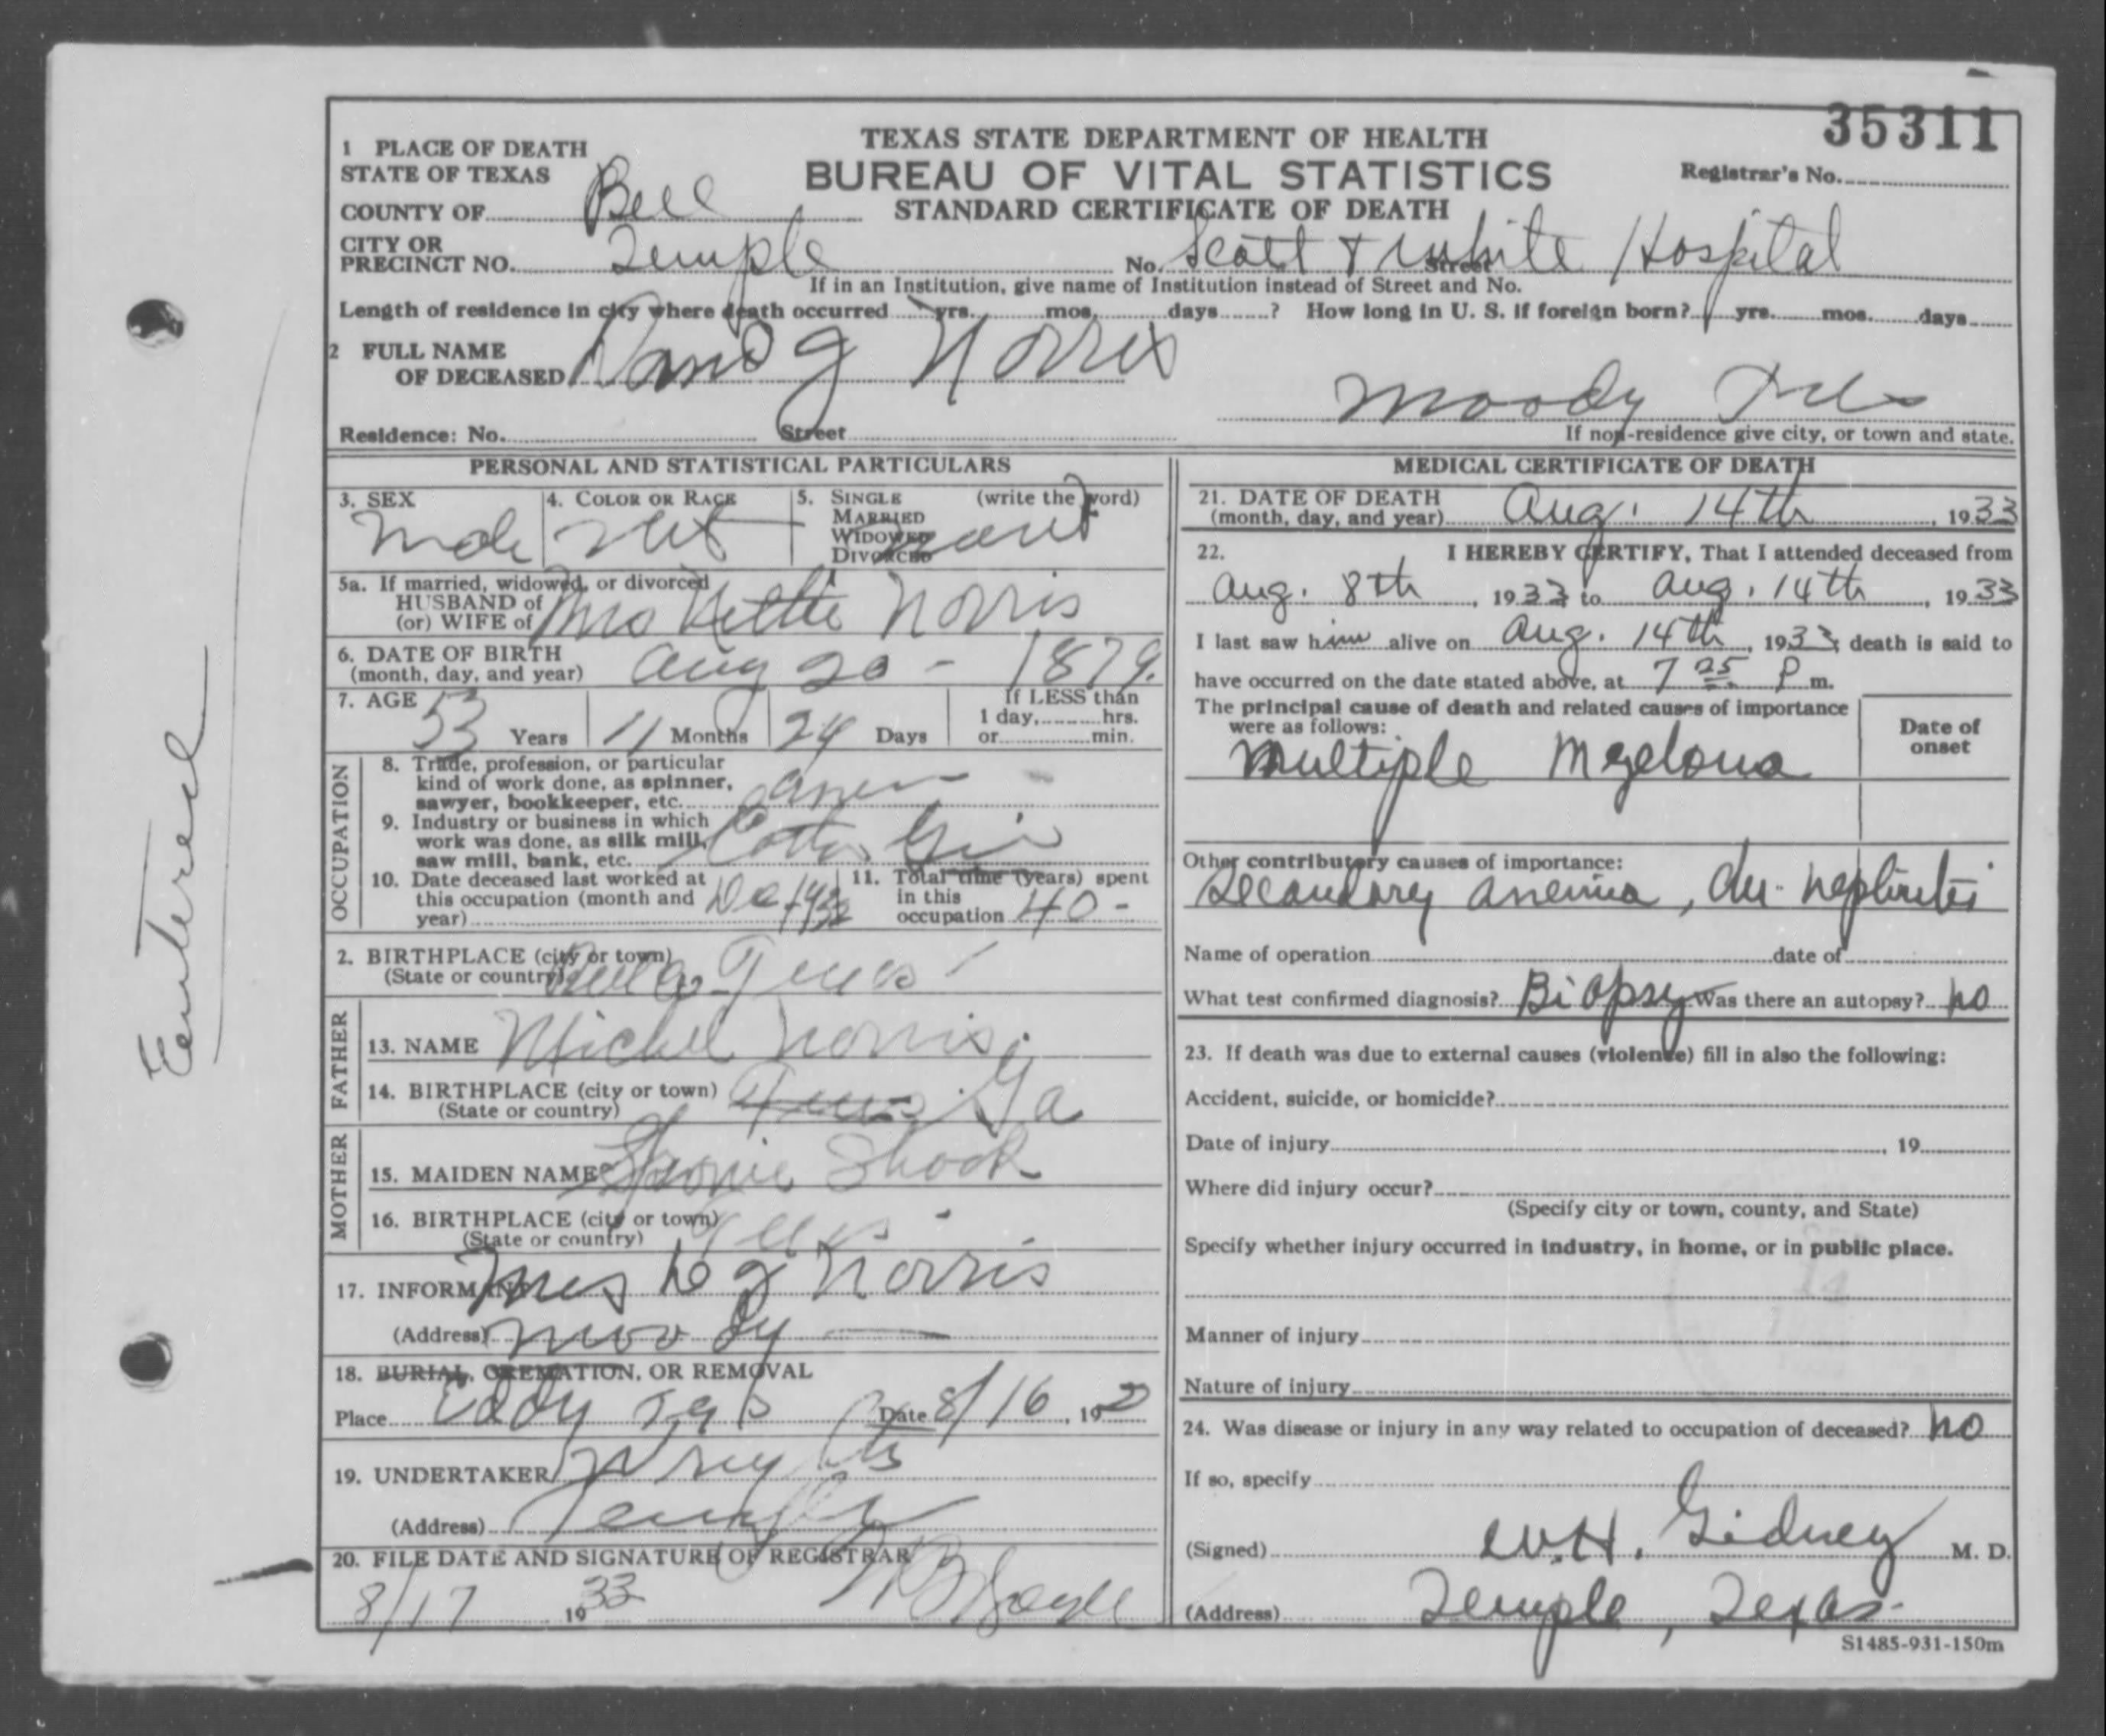 35311
TEXAS STATE DEPARTMENT OF HEALTH
BUREAU OF VITAL STATISTICS
STANDARD CERTIFICATE OF DEATH
Registrar's No.
1 PLACE OF DEATH
STATE OF TEXAS
COUNTY OF Bell
CITY OR
PRECINCT NO. Temple No. Scott & White Hospital Street
If in an Institution, give name of Institution instead of Street and No.
Length of residence in city where death occurred yrs. mos. days ? How long in U. S. if foreign born? yrs. mos. days
2 FULL NAME
OF DECEASED J Norris
Moody
Residence: No. Street
If non-residence give city, or town and state.
PERSONAL AND STATISTICAL PARTICULARS
3. SEX 4. COLOR OR RACE 5. SINGLE (write the word)
MARRIED
WIDOWED
DIVORCED
Male
5a. If married, widowed, or divorced
HUSBAND of
(or) WIFE of Mrs Nettie Norris
6. DATE OF BIRTH
(month, day, and year) Aug 20 - 1879.
7. AGE 53 Years 11 Months 24 Days If LESS than
1 day, hrs.
or min.
OCCUPATION
8. Trade, profession, or particular
kind of work done, as spinner,
sawyer, bookkeeper, etc.
9. Industry or business in which
work was done, as silk mill,
saw mill, bank, etc. Cotton Gin
10. Date deceased last worked at
this occupation (month and
year) 1932
11. Total time (years) spent
in this
occupation 40 -
2. BIRTHPLACE (city or town)
(State or country)
FATHER
13. NAME Michel Norris
14. BIRTHPLACE (city or town)
(State or country) Ga
MOTHER
15. MAIDEN NAME Shook
16. BIRTHPLACE (city or town)
(State or country)
17. INFORMANT Mrs D J Norris
(Address) Moody
18. BURIAL, CREMATION, OR REMOVAL
Place Eddy Date 8/16, 19
19. UNDERTAKER
(Address) Temple
20. FILE DATE AND SIGNATURE OF REGISTRAR
8/17 1933
MEDICAL CERTIFICATE OF DEATH
21. DATE OF DEATH
(month, day, and year) Aug. 14th, 1933
22. I HEREBY CERTIFY, That I attended deceased from
Aug. 8th, 1933 to Aug. 14th, 1933
I last saw him alive on Aug. 14th, 1933, death is said to
have occurred on the date stated above, at 7 25 P m.
The principal cause of death and related causes of importance
were as follows:
Date of
onset
Multiple Myeloma
Other contributory causes of importance:
Secondary anemia, nephritis
Name of operation date of
What test confirmed diagnosis? Biopsy Was there an autopsy? no
23. If death was due to external causes (violence) fill in also the following:
Accident, suicide, or homicide?
Date of injury , 19
Where did injury occur?
(Specify city or town, county, and State)
Specify whether injury occurred in industry, in home, or in public place.
Manner of injury
Nature of injury
24. Was disease or injury in any way related to occupation of deceased? no
If so, specify
(Signed) W.H. Gidney M. D.
(Address) Temple, Texas.
S1485-931-150m
Entered